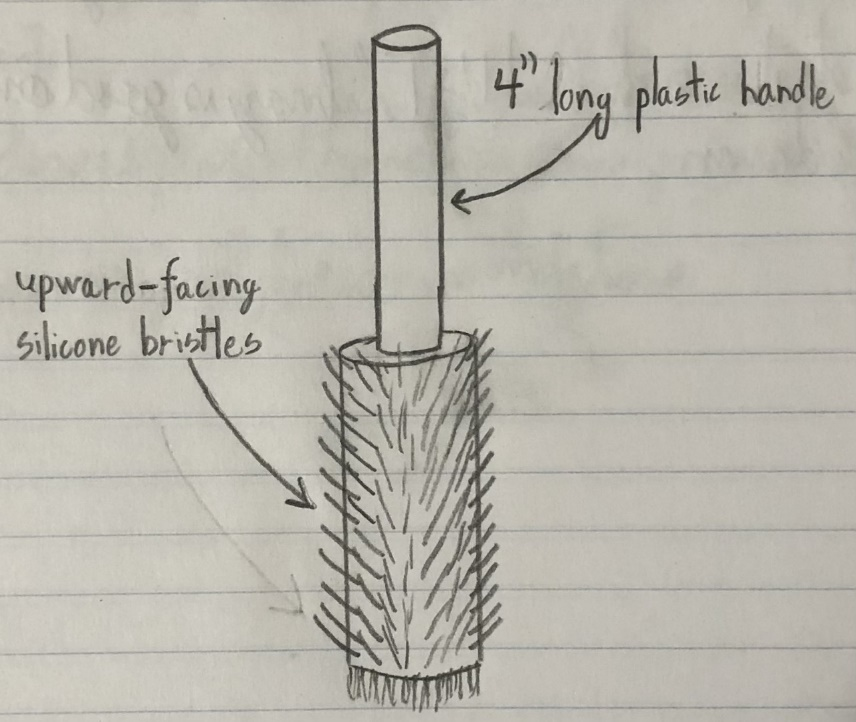 4" long plastic handle
upward-facing
silicone bristles